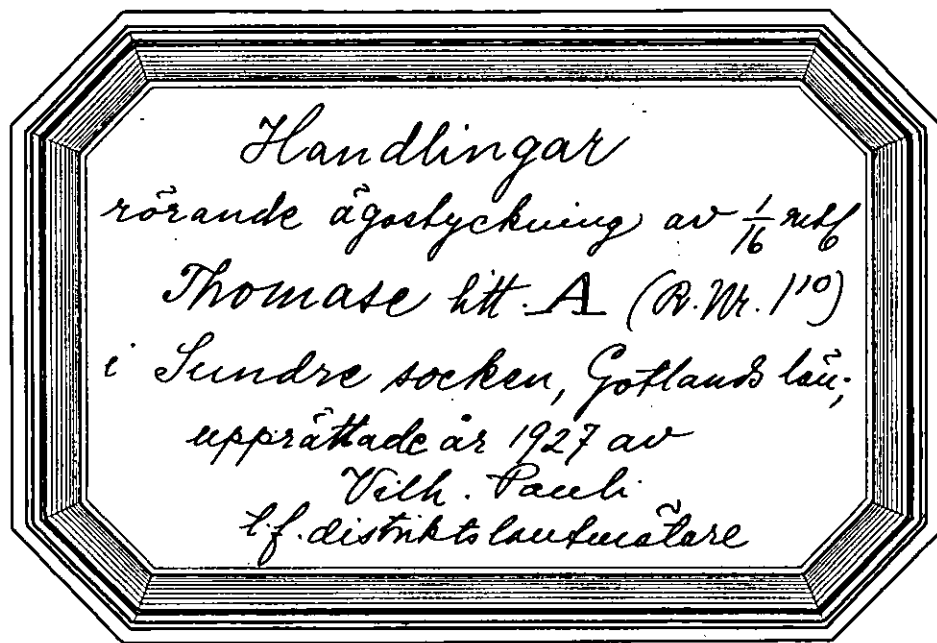 Handlingar
rörande ägostyckning av 1/16 mtl
Thomase litt. A (R. Nr. 1¹⁰)
i Sundre socken, Gotlands län;
upprättade år 1927 av
Vilh. Pauli
t.f. distriktslantmätare